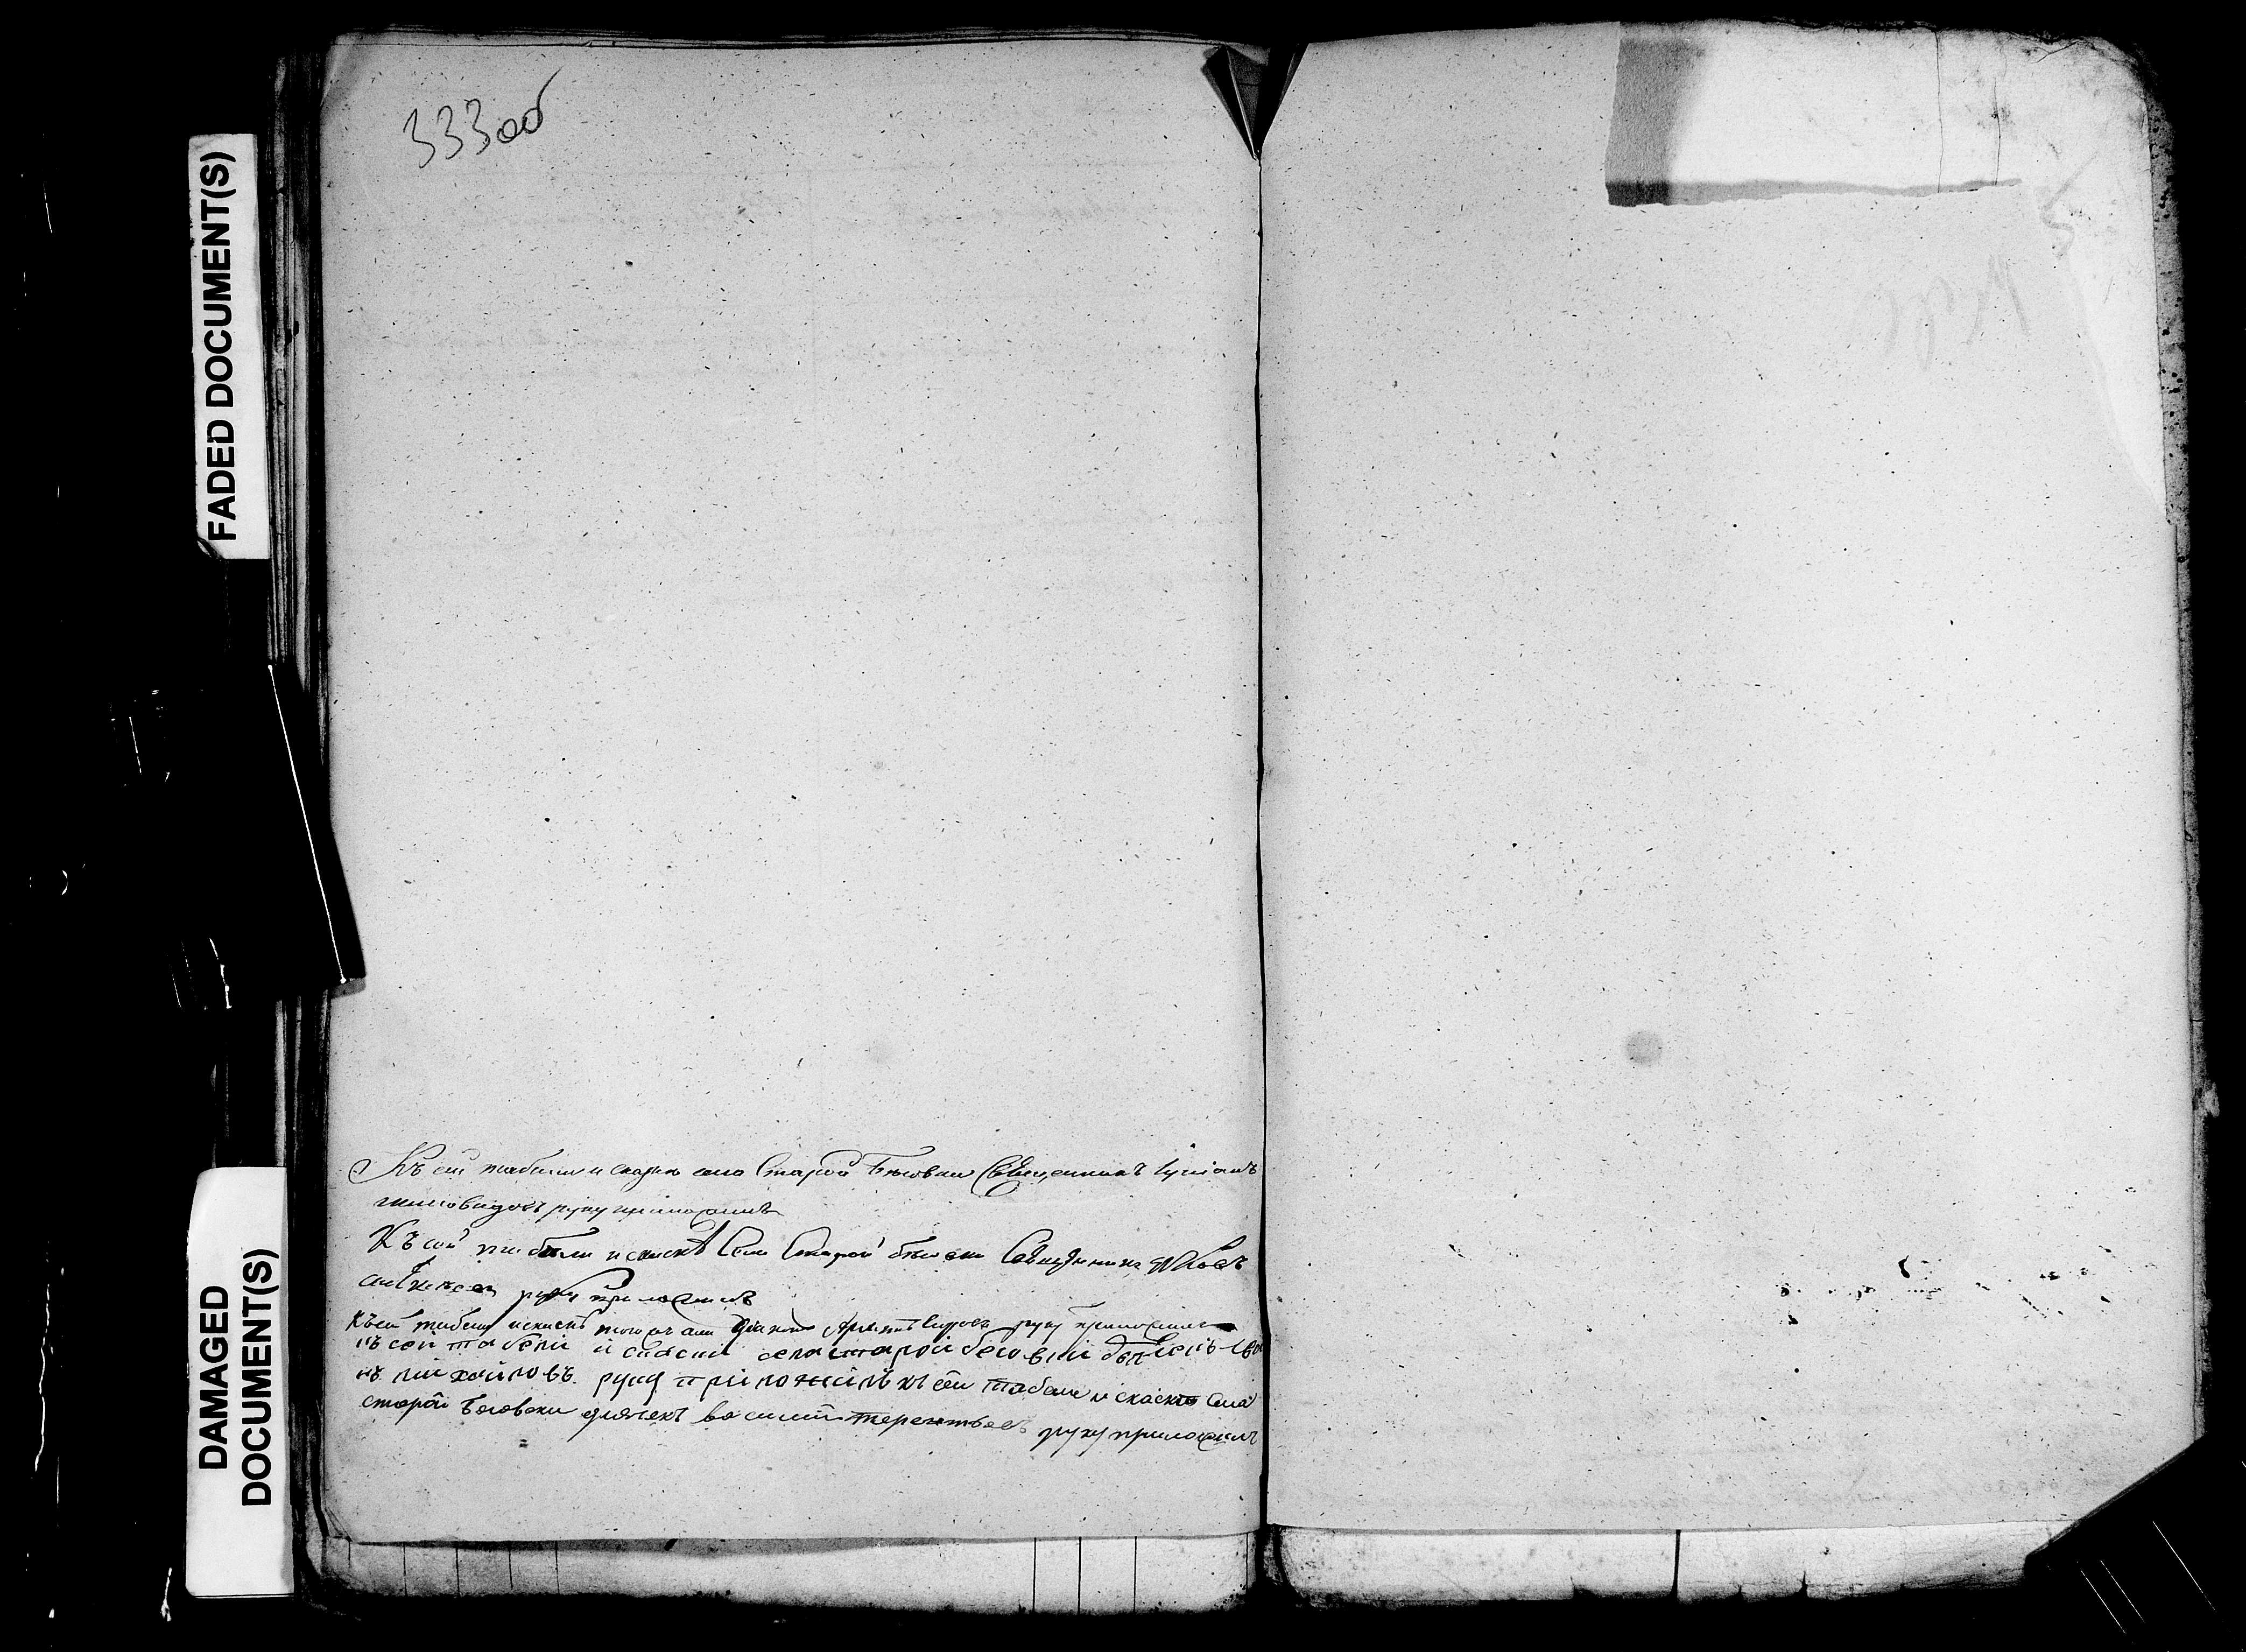 FADED DOCUMENT(S)
DAMAGED
DOCUMENT(S)
333 об
Къ сей табели и скаски села Старой Бысовки Священникъ
руку приложилъ
Къ сей табели и скаскѣ Села Старой Священникъ Яковъ
Алексеевъ руку приложилъ
Къ сей табели и скаскѣ того жъ села Диаконъ руку приложилъ
къ сей табели и скаски села старой бесовки дьячекъ Ива
нъ михайловъ руку приложилъ къ сей табели и скаске села
старой Бесовки дьячекъ василий терентьевъ руку приложилъ